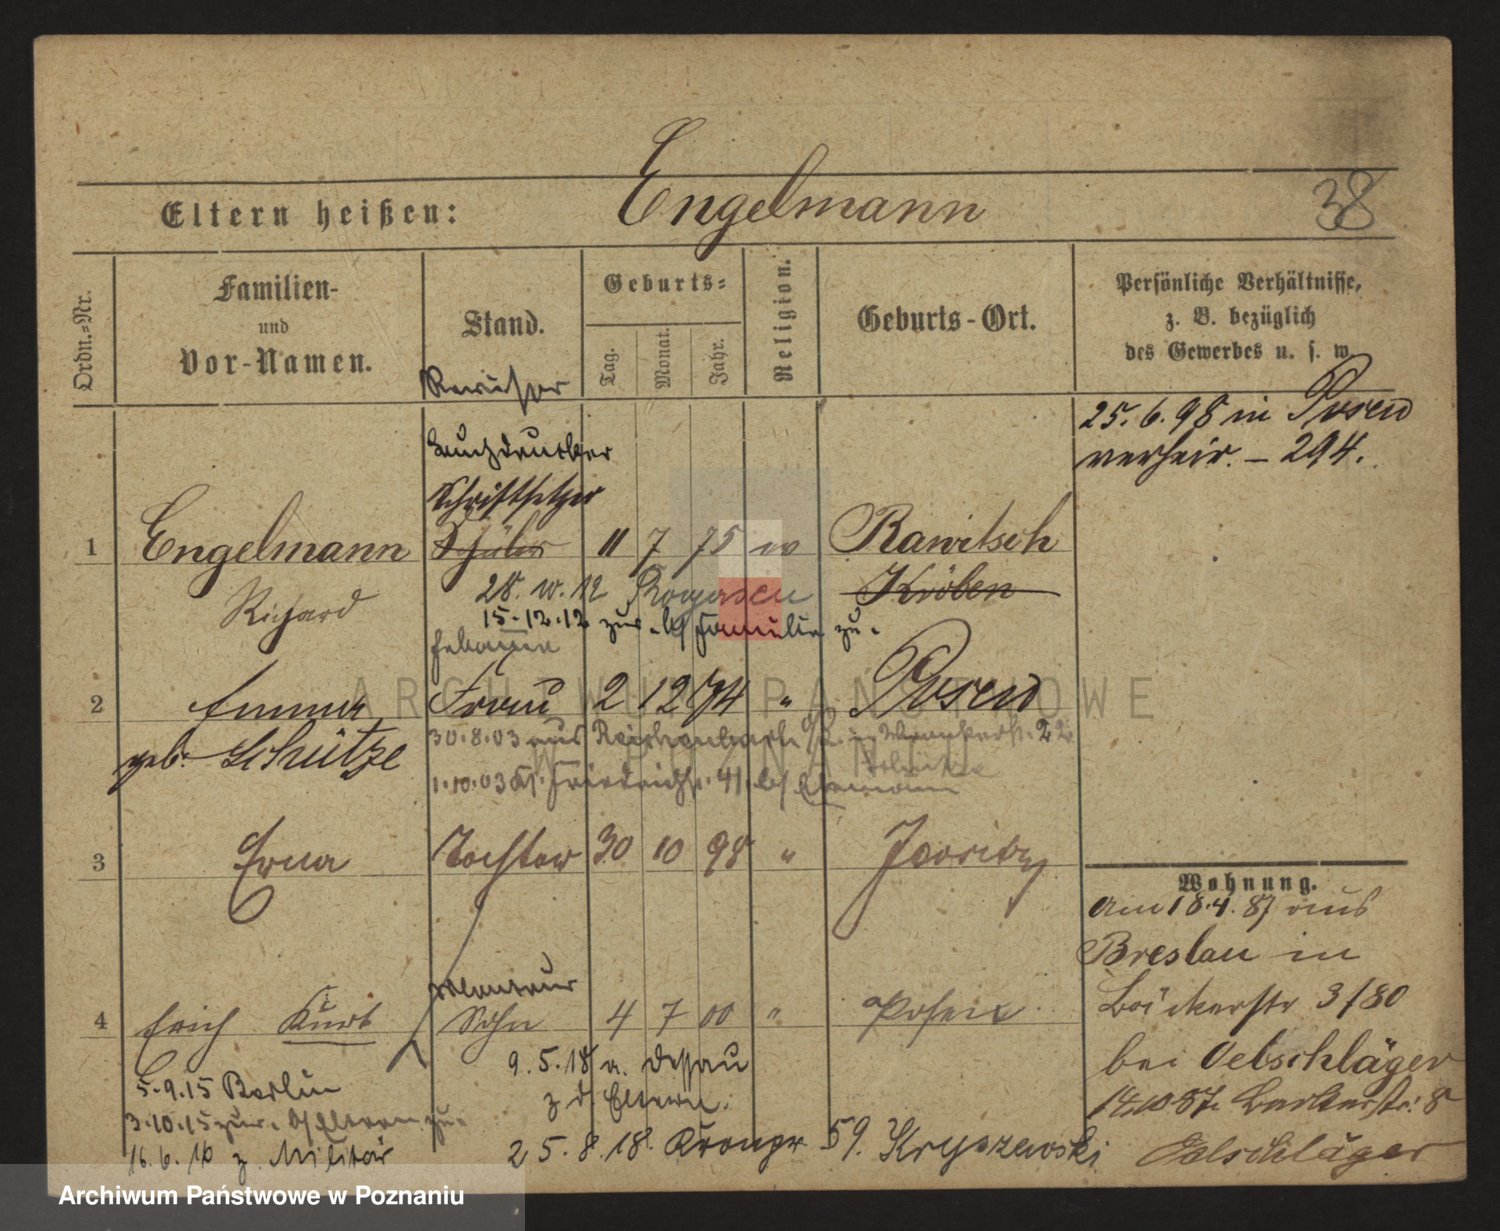 Eltern heißen: Engelmann 38
Ordn.-Nr.
Familien-
und
Vor-Namen.
Stand.
Geburts-
Tag.
Monat.
Jahr.
Religion.
Geburts-Ort.
Persönliche Verhältnisse,
z. B. bezüglich
des Gewerbes u. s. w.
25. 6. 98 in Posen
verheir. – 294.
Buchdrucker
Schriftsetzer
1 Engelmann Schüler 11 7 75 ev Rawitsch
Richard 28. 10. 12 Rogasen Kröben
15.12.12 zur. b/ Familie zu.
2 Emma, Frau 2 12 74 " Posen
geb. Schütze
30.8.03 aus
1.10.03
3 Erna Tochter 30 10 98 "
4 Erich Kurt Sohn 4 7 00 " Posen
Volontair
5.9.15 Berlin
3.10.15 zur. b/ Eltern zu.
16.6.16 z. Militär
9.5.18 a. Dessau
z d Eltern.
25.8.18. Kronpr 59. Kryszewski
Wohnung.
Am 18.4.87 aus
Breslau in
Bäckerstr 3/80
bei Oelschläger
14.10.87. Bäckerstr. 8
Oelschläger
ARCHIWUM PAŃSTWOWE
W POZNANIU
Archiwum Państwowe w Poznaniu